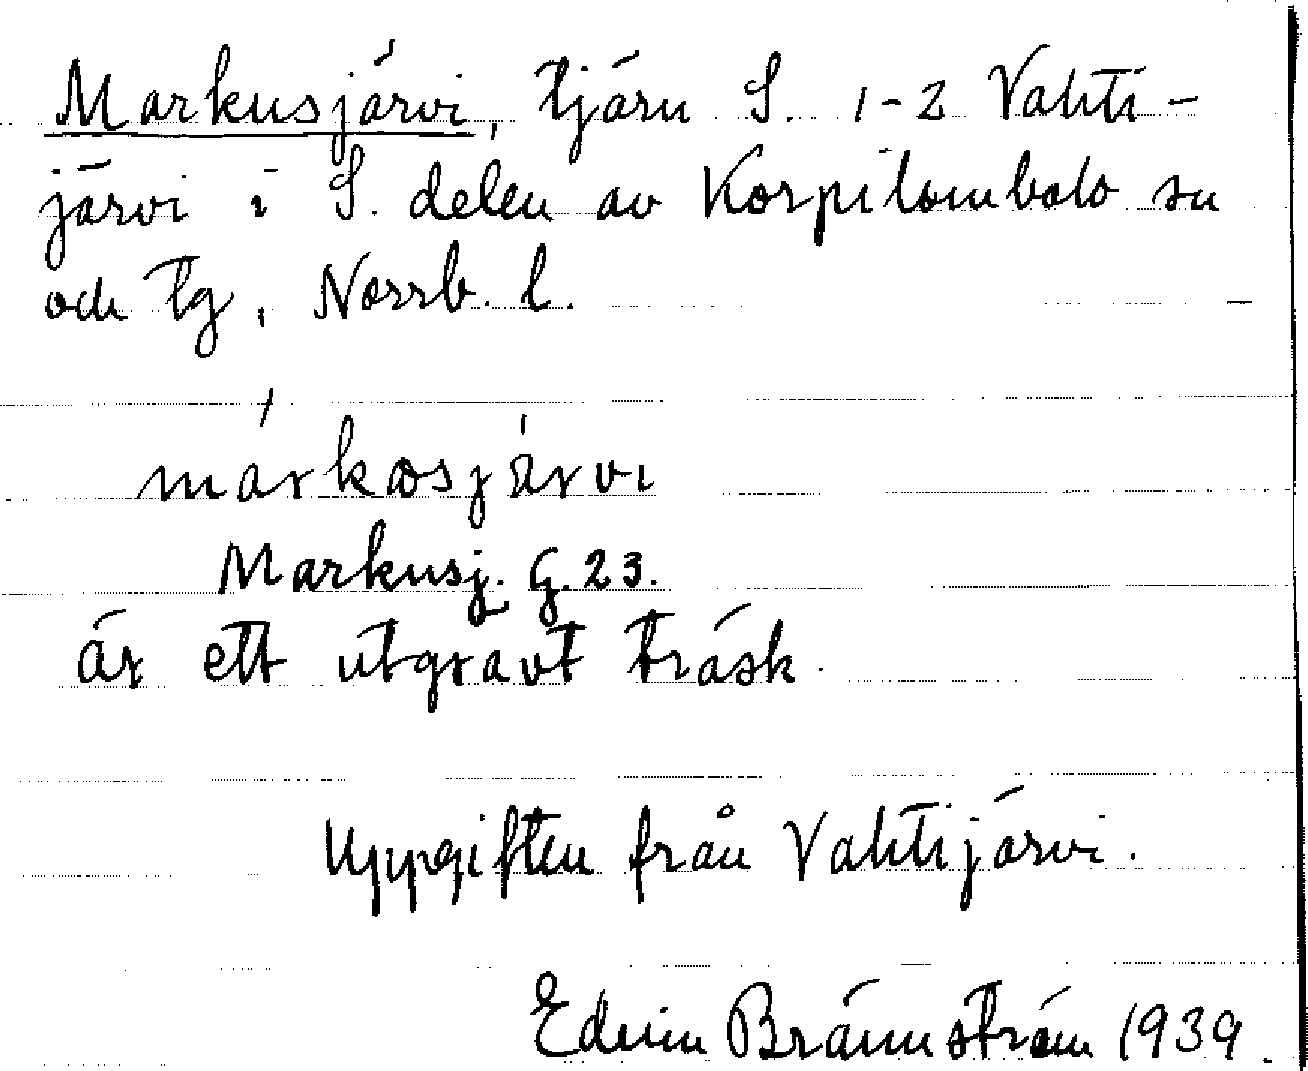 Markusjärvi, tjärn S. 1-2 Vahti-
järvi i S. delen av Korpilombolo sn
och tg, Norrb. l.
márkosjärvi
Markusj. G. 23.
är ett utgrävt träsk.
Uppgiften från Vahtijärvi.
Edvin Brännström 1939.